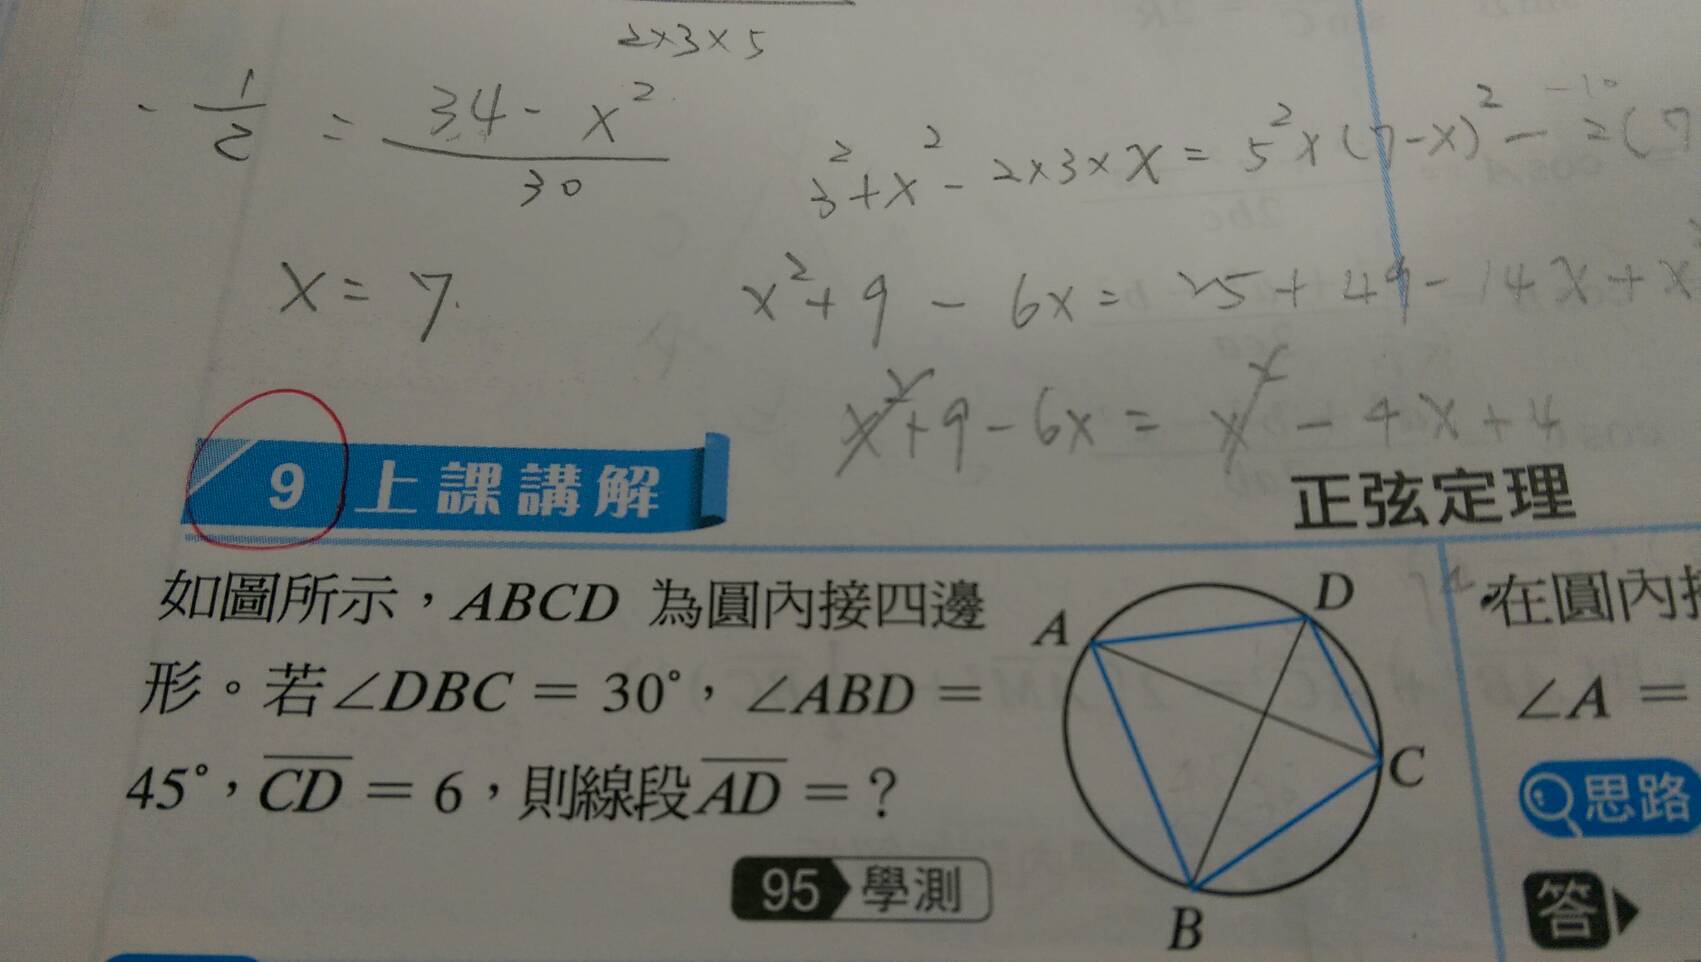 2×3×5
- 1/2 = 34 - x² / 30
3² + x² - 2×3×x = 5² x (7-x)² - 2(7
-10
x = 7.
x² + 9 - 6x = 25 + 49 - 14x + x
x² + 9 - 6x = x² - 4x + 4
9 上課講解
正弦定理
如圖所示，ABCD 為圓內接四邊
形。若∠DBC = 30°，∠ABD =
45°，CD = 6，則線段AD = ？
95 學測
A
D
C
B
在圓內接
∠A =
思路
答